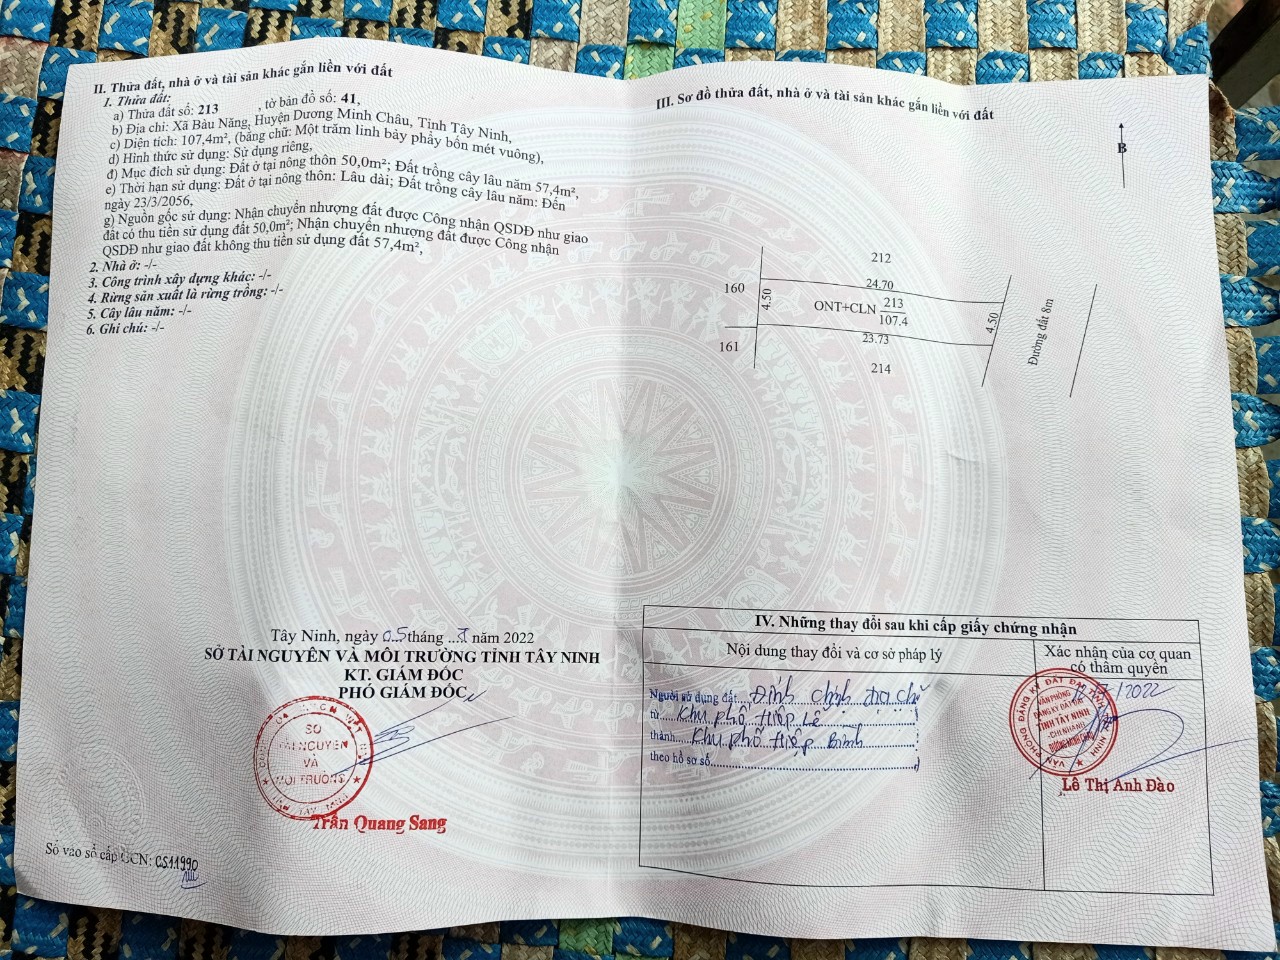 II. Thửa đất, nhà ở và tài sản khác gắn liền với đất
1. Thửa đất:
a) Thửa đất số: 213 , tờ bản đồ số: 41,
b) Địa chỉ: Xã Bàu Năng, Huyện Dương Minh Châu, Tỉnh Tây Ninh,
c) Diện tích: 107,4m², (bằng chữ: Một trăm linh bảy phẩy bốn mét vuông),
d) Hình thức sử dụng: Sử dụng riêng,
đ) Mục đích sử dụng: Đất ở tại nông thôn 50,0m²; Đất trồng cây lâu năm 57,4m²,
e) Thời hạn sử dụng: Đất ở tại nông thôn: Lâu dài; Đất trồng cây lâu năm: Đến
ngày 23/3/2056,
g) Nguồn gốc sử dụng: Nhận chuyển nhượng đất được Công nhận QSDĐ như giao
đất có thu tiền sử dụng đất 50,0m²; Nhận chuyển nhượng đất được Công nhận
QSDĐ như giao đất không thu tiền sử dụng đất 57,4m²,
2. Nhà ở: -/-
3. Công trình xây dựng khác: -/-
4. Rừng sản xuất là rừng trồng: -/-
5. Cây lâu năm: -/-
6. Ghi chú: -/-
Tây Ninh, ngày 05 tháng ... năm 2022
SỞ TÀI NGUYÊN VÀ MÔI TRƯỜNG TỈNH TÂY NINH
KT. GIÁM ĐỐC
PHÓ GIÁM ĐỐC
SỞ
TÀI NGUYÊN
VÀ
MÔI TRƯỜNG
TỈNH TÂY NINH
Trần Quang Sang
Số vào sổ cấp GCN: CS11990
III. Sơ đồ thửa đất, nhà ở và tài sản khác gắn liền với đất
B
212
160
24.70
4.50
ONT+CLN 213
107.4
4.50
Đường đất 8m
161
23.73
214
IV. Những thay đổi sau khi cấp giấy chứng nhận
Nội dung thay đổi và cơ sở pháp lý
Xác nhận của cơ quan
có thẩm quyền
Người sử dụng đất Đính chính địa chỉ
từ Khu phố Hiệp Lễ
thành Khu phố Hiệp Bình
theo hồ sơ số
/2022
VĂN PHÒNG
ĐĂNG KÝ ĐẤT ĐAI
TỈNH TÂY NINH
CHI NHÁNH
DƯƠNG MINH CHÂU
Lê Thị Anh Đào